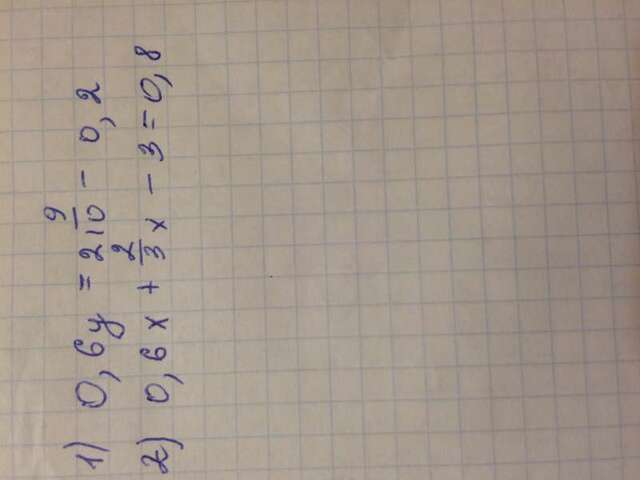 1) 0,6y = 2 9/10 - 0,2
2) 0,6x + 2/3 x - 3 = 0,8